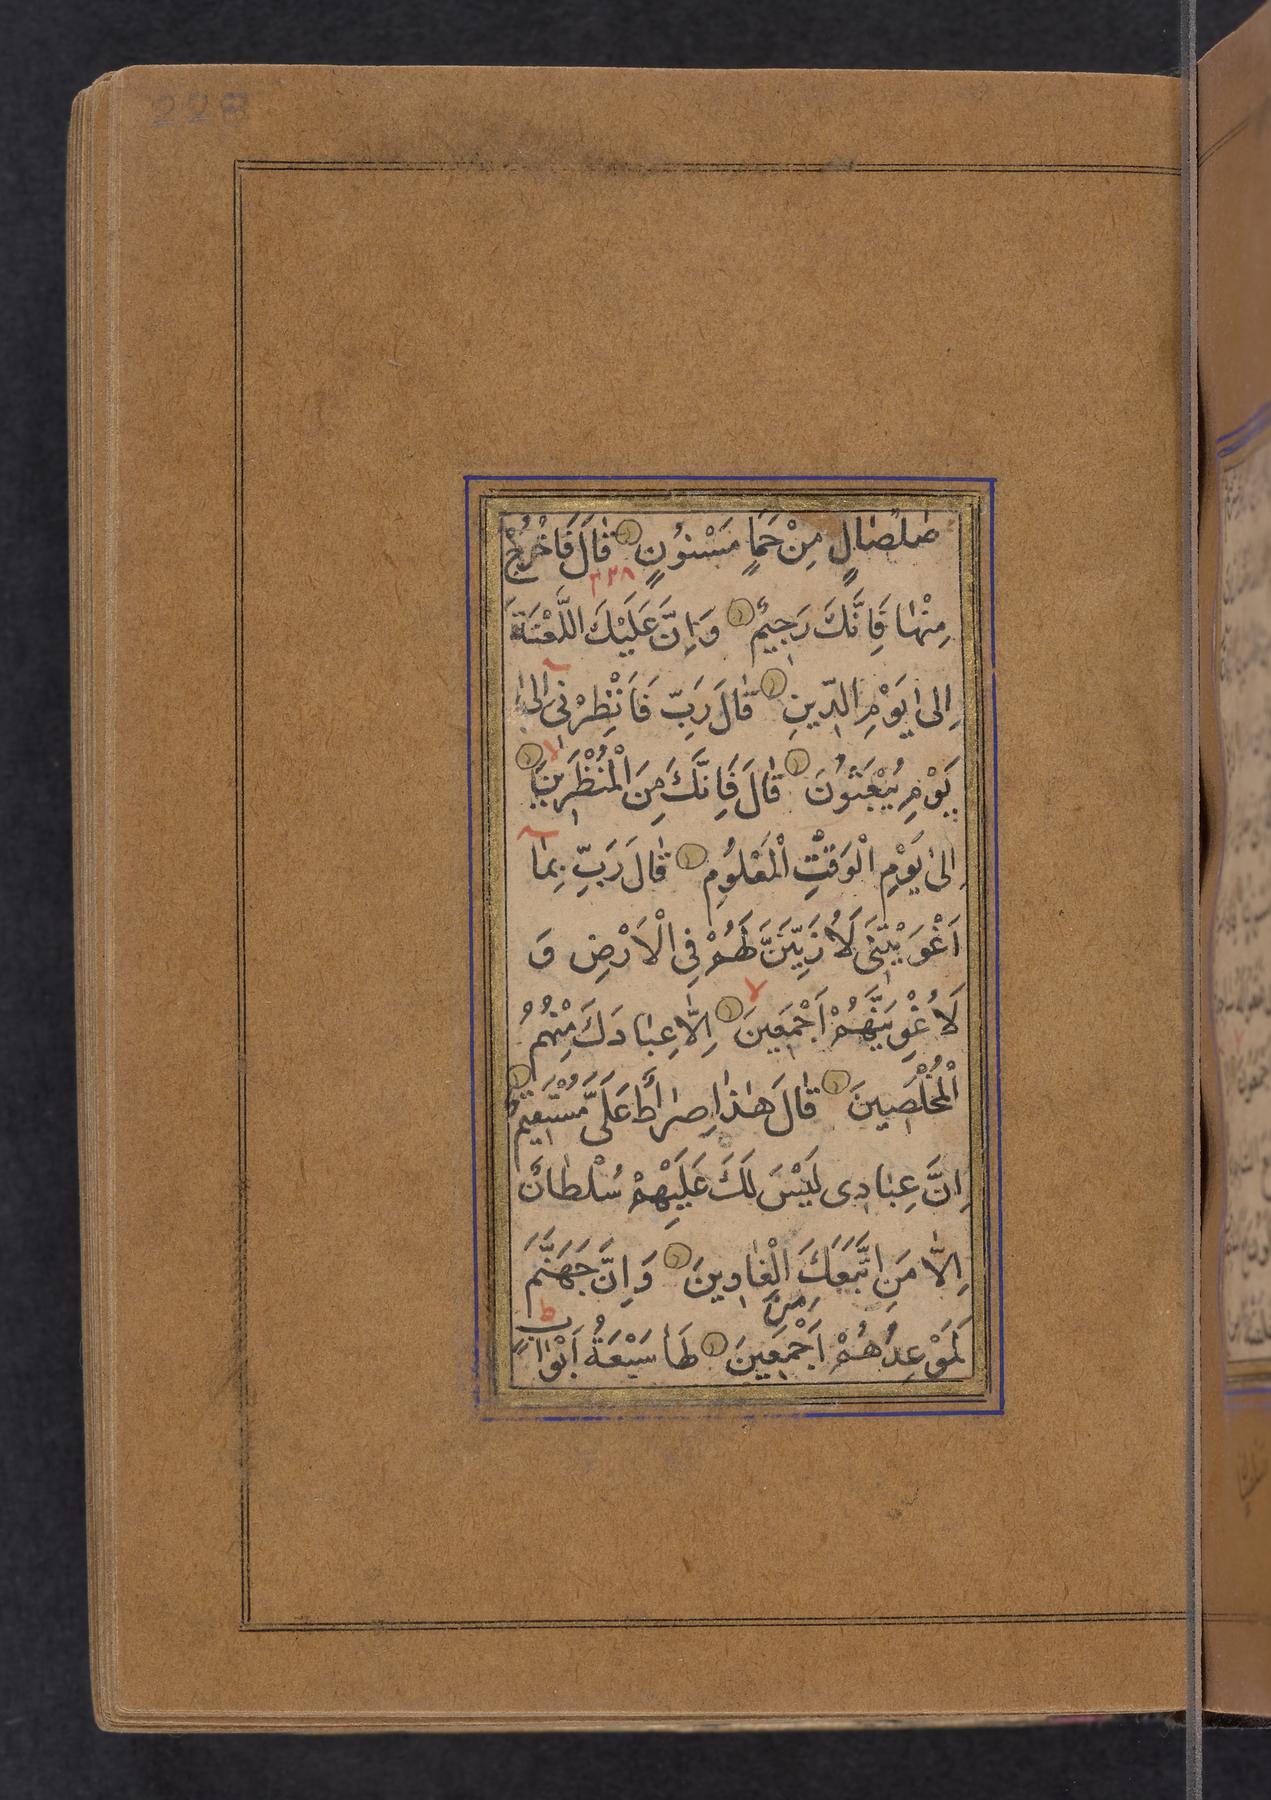 228
صَلْصَالٍ مِنْ حَمَإٍ مَسْنُونٍ قَالَ فَاخْرُجْ
٢٢٨
مِنْهَا فَاِنَّكَ رَجِيمٌ وَاِنَّ عَلَيْكَ اللَّعْنَةَ
اِلىٰ يَوْمِ الدِّينِ قَالَ رَبِّ فَاَنْظِرْنِى اِلىٰ
يَوْمِ يُبْعَثُونَ قَالَ فَاِنَّكَ مِنَ الْمُنْظَرِينَ
اِلىٰ يَوْمِ الْوَقْتِ الْمَعْلُومِ قَالَ رَبِّ بِمَا
اَغْوَيْتَنِى لَاُزَيِّنَنَّ لَهُمْ فِى الْاَرْضِ وَ
لَاُغْوِيَنَّهُمْ اَجْمَعِينَ اِلَّا عِبَادَكَ مِنْهُمُ
الْمُخْلَصِينَ قَالَ هٰذَا صِرَاطٌ عَلَىَّ مُسْتَقِيمٌ
اِنَّ عِبَادِى لَيْسَ لَكَ عَلَيْهِمْ سُلْطَانٌ
اِلَّا مَنِ اتَّبَعَكَ مِنَ الْغَاوِينَ وَاِنَّ جَهَنَّمَ
لَمَوْعِدُهُمْ اَجْمَعِينَ لَهَا سَبْعَةُ اَبْوَابٍ